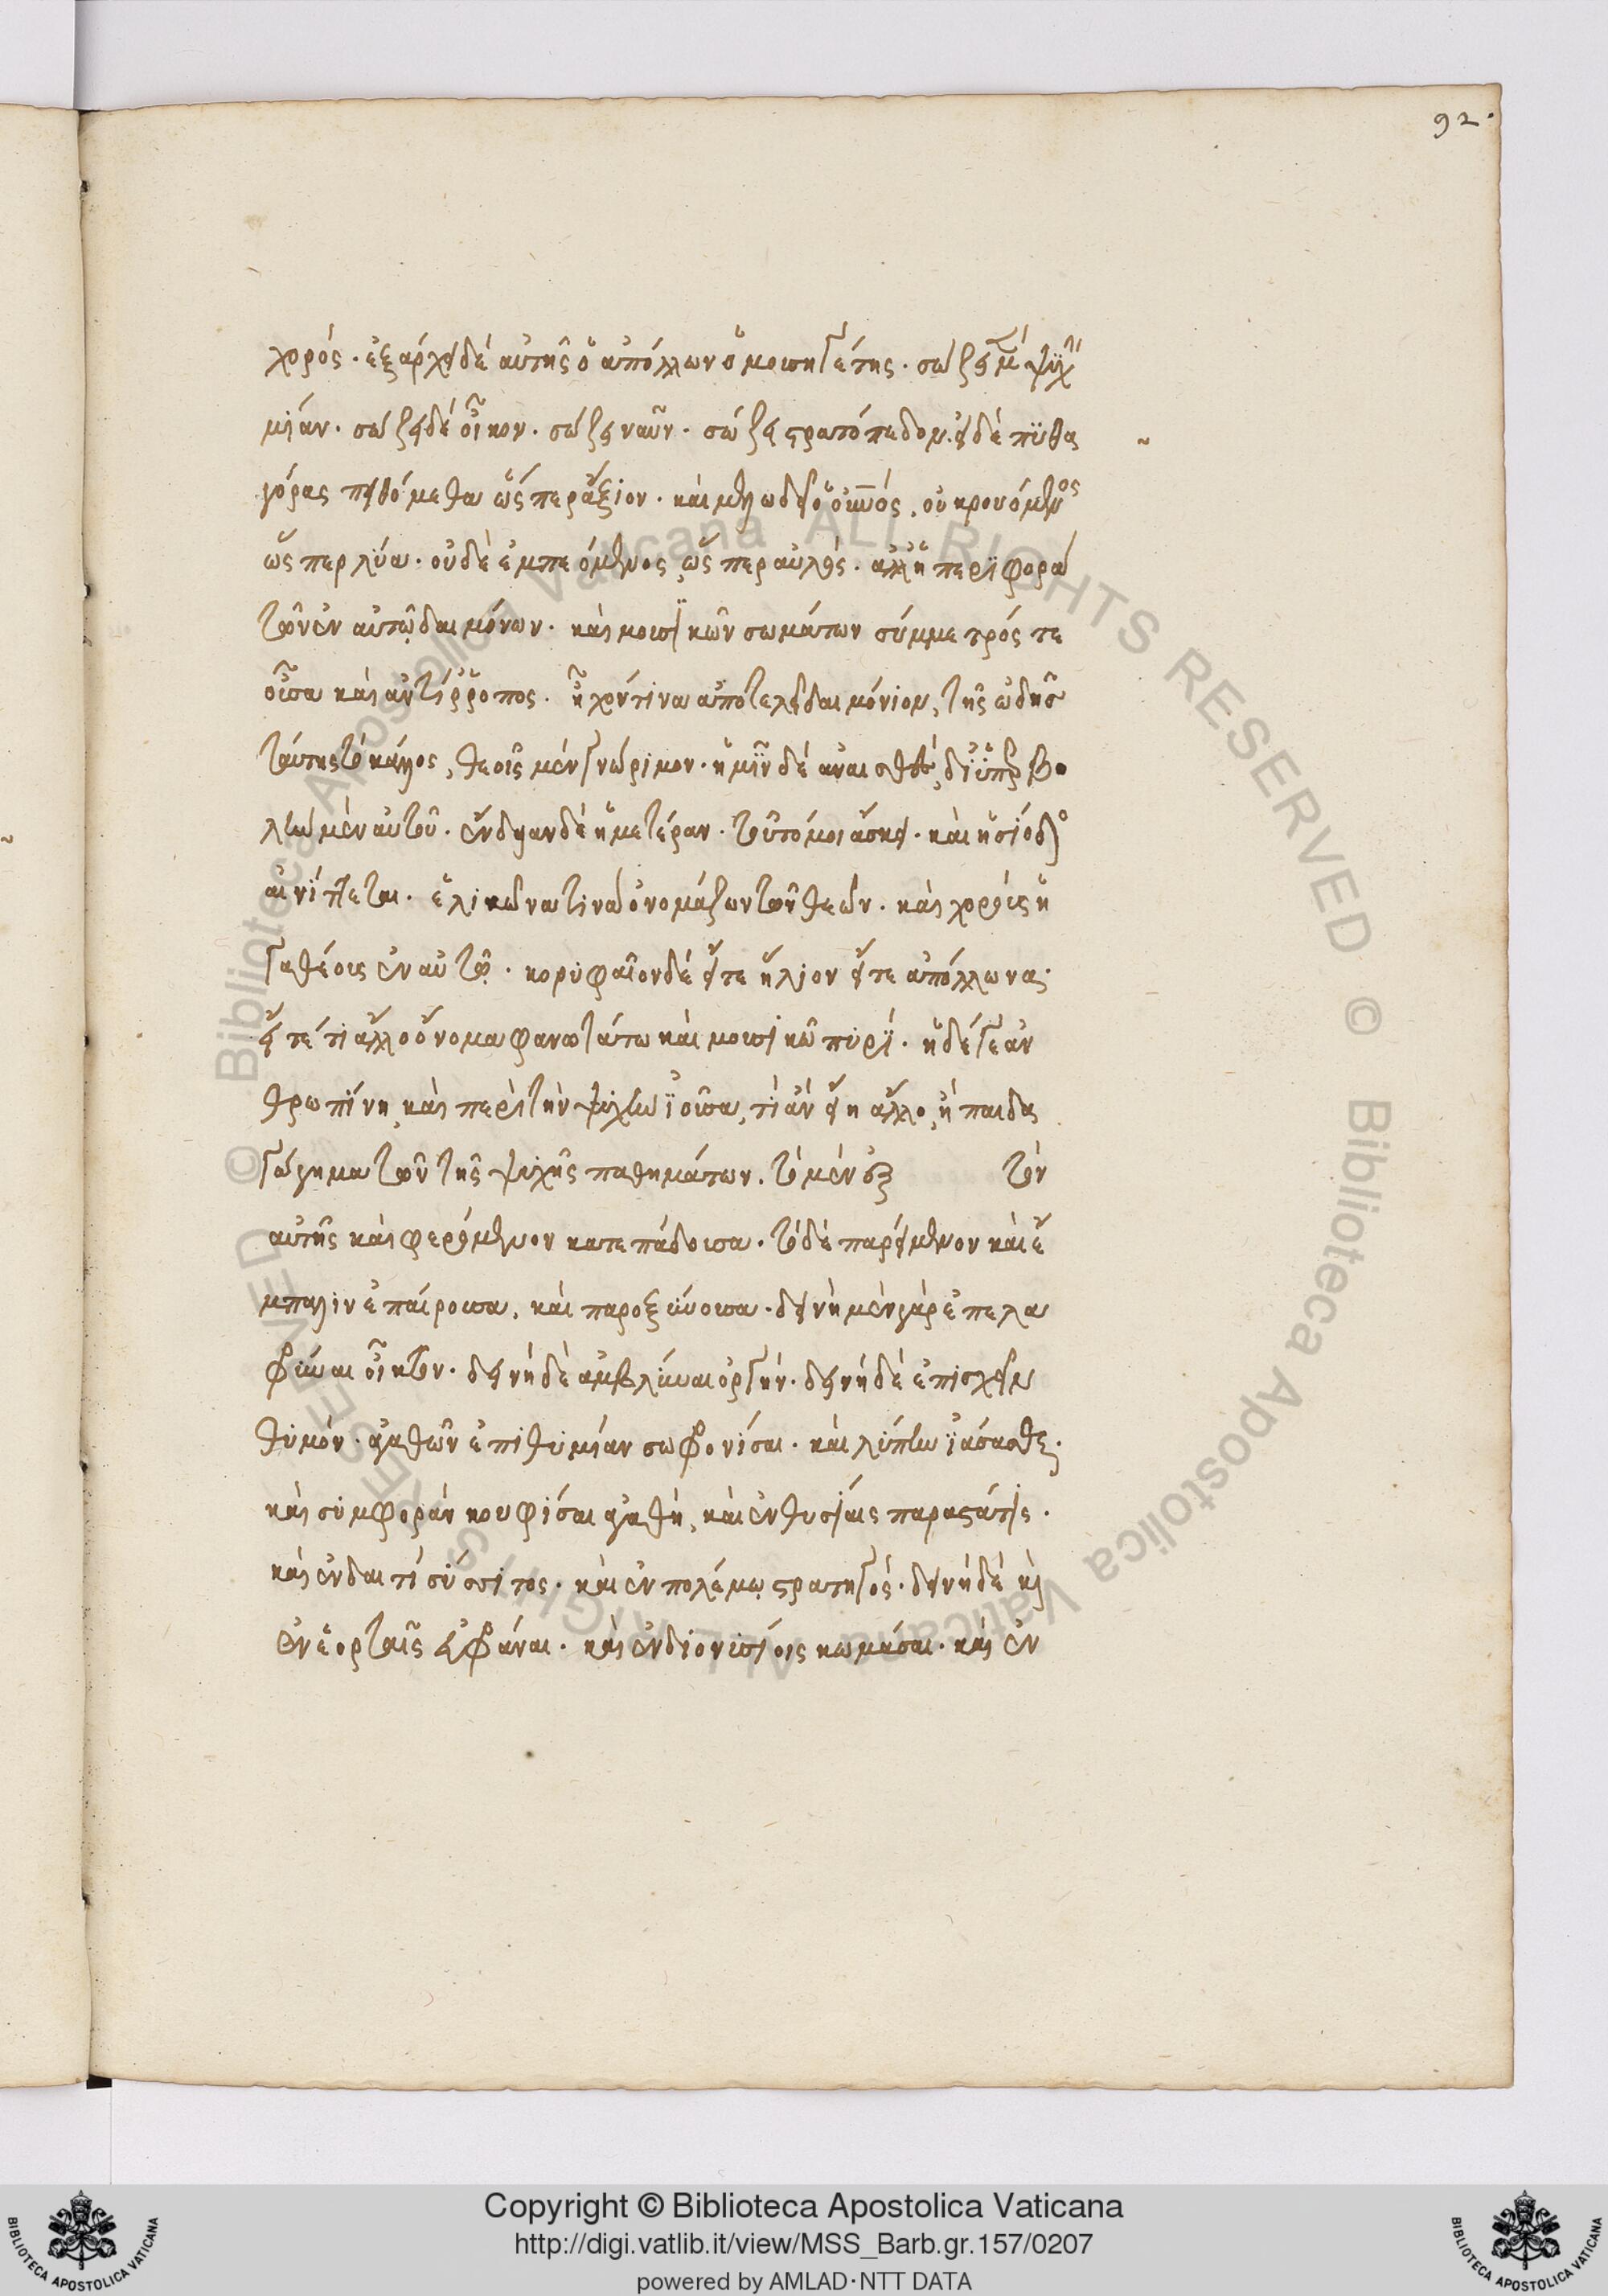 92.
χορός. ἐξάρχει δέ αὐτῆς ὁ ἀπόλλων ὁ μουσηγέτης. σώζει μ(ὲν) ψυχὴ(ν)
μίαν. σώζει δέ οἶκον. σώζει ναῦν. σώζει στρατόπεδον. εἰ δὲ πϋθα
γόρᾳ πειθόμεθα ὥς περ ἄξιον. καὶ μελωδεῖ ὁ οὐνός. οὐ κρουόμενος
ὥς περ λύρα. οὐδὲ ἐμπνεόμενος, ὥς περ αὐλός. ἀλλ' ἡ περϊφορὰ
τῶν ἐν αὐτῷ δαιμόνων. καὶ μουσϊκῶν σωμάτων σύμμετρός τε
οὖσα καὶ ἀντίρῤοπος. ἦχόν τινα ἀποτελεῖ δαιμόνιον, τῆς ὠδῆς
ταύτης τὸ κάλλος, θεοῖς μέν γνώριμον. ἡμῖν δέ ἀναισθητ(ον), δι' ὑπερβο
λὴν μὲν αὐτοῦ. ἔνδειαν δὲ ἡμετέραν. τοῦτό μοι δοκεῖ. καὶ ἡσίοδος
αἰνίττεται. ἑλικῶνα τινὰ ὀνομάζων τῶν θεῶν. καὶ χορούς ἡ
γαθέους ἐν αὐτῷ. κορυφαῖον δέ εἴτε ἥλιον εἴτε ἀπόλλωνα.
εἴτέ τι ἄλλο ὄνομα φανοτάτω καὶ μουσϊκῶ πυρί. ἡ δέ γε ἀν
θρωπίνη, καὶ περὶ τὴν ψυχὴν ἰοῦσα, τί ἂν εἴη ἄλλο, ἢ παιδα
γώγημα τῶν τῆς ψυχῆς παθημάτων. τὸ μέν ἐξ τὸν
αὐτῆς καὶ φερόμενον κατεπάδουσα. τὸ δὲ παρειμένον καὶ ἔ
μπαλιν ἐπαίρουσα, καὶ παροξύνουσα. δεινὴ μὲν γὰρ ἐπελα
φρῦναι οἶκτον. δεινὴ δὲ ἀμβλῦναι ὀργήν. δεινὴ δὲ ἐπισχεῖν
θυμόν. ἀγαθῶν ἐπιθυμίαν σωφρονίσαι. καὶ λύπην ἰάσασθαι.
καὶ συμφορὰν κουφίσαι ἀγαθὴ, καὶ ἐν θυσίαις παραστάτις.
καὶ ἐν δαιτὶ σύσσιτος. καὶ ἐν πολέμῳ στρατηγός. δεινὴ δὲ καὶ
ἐν ἑορταῖς εὐφρᾶναι. καὶ ἐν διονυσίοις κωμάσαι. καὶ ἐν
Copyright © Biblioteca Apostolica Vaticana
http://digi.vatlib.it/view/MSS_Barb.gr.157/0207
powered by AMLAD·NTT DATA
© Biblioteca Apostolica Vaticana ALL RIGHTS RESERVED
© Biblioteca Apostolica Vaticana ALL RIGHTS RESERVED
BIBLIOTECA APOSTOLICA VATICANA
BIBLIOTECA APOSTOLICA VATICANA